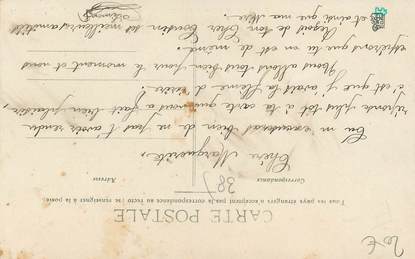 CARTE POSTALE
Tous les pays étrangers n'acceptent pas la correspondance au recto : se renseigner à la poste.
Correspondance
Adresse
38)
Chère Marguerite,
Tu m'excuseras bien de ne pas t'avoir rendu
réponse plus tôt à ta carte qui nous a fait bien plaisir,
c'est que j'avais la flème d'écrire.
Nous allons tous bien pour le moment et nous
espérons qu'il en est de même.
Reçois de ton cher Cousin ses meilleures amitiés
et ainsi que ma mère.
Clément
20 €